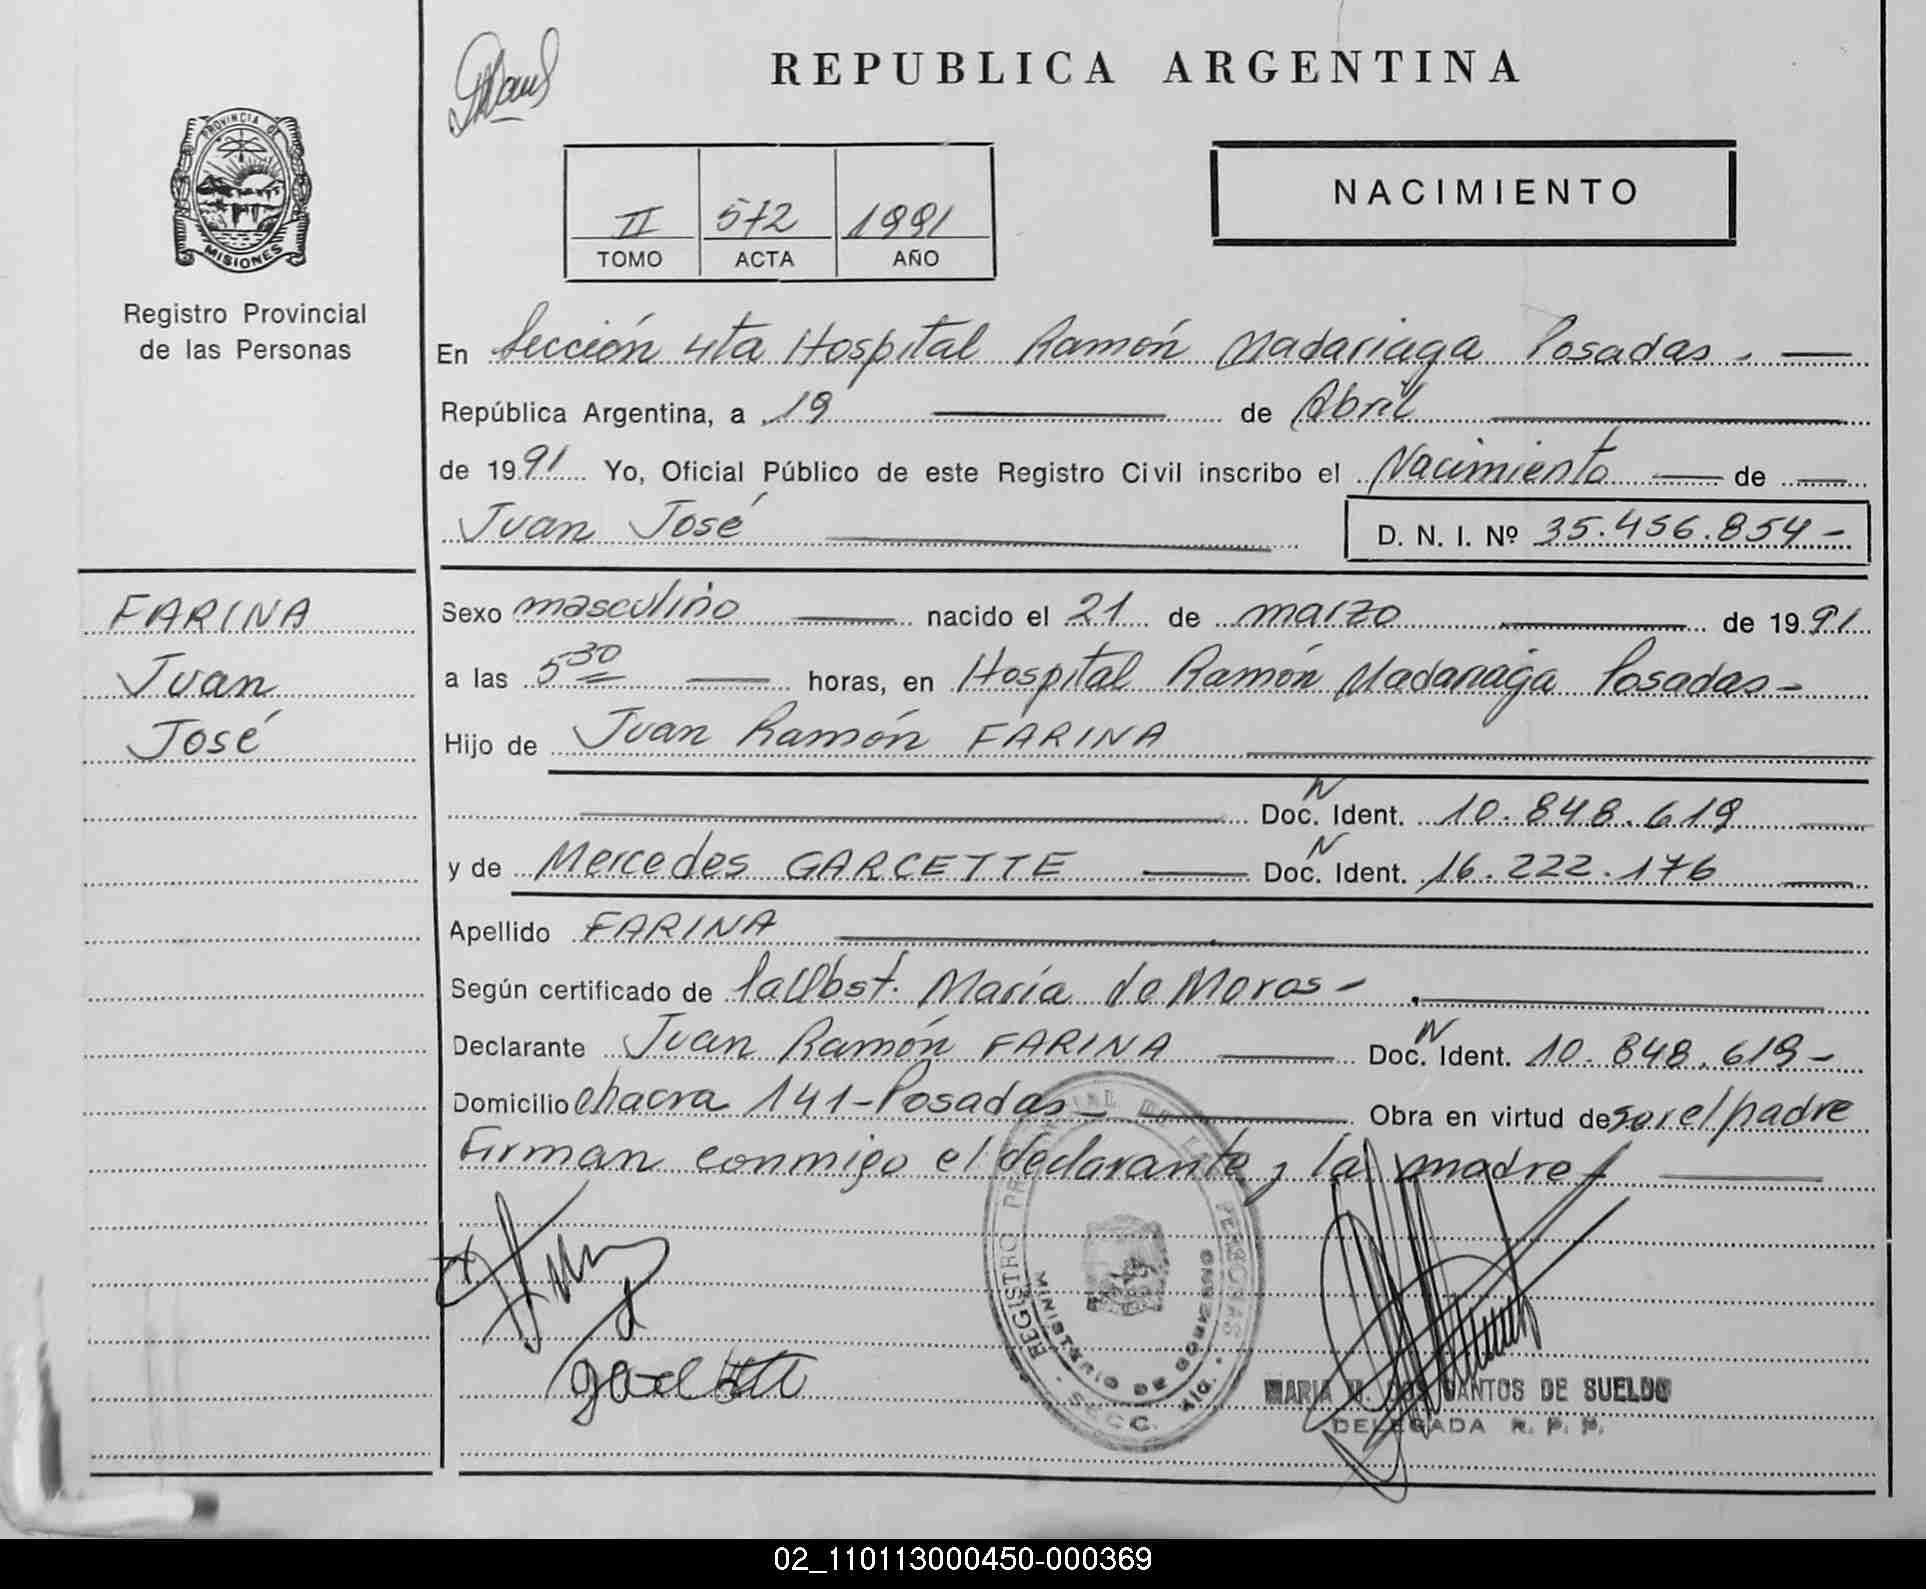 REPUBLICA ARGENTINA
PROVINCIA DE
MISIONES
Registro Provincial
de las Personas
II 572 1991
TOMO ACTA AÑO
NACIMIENTO
En Sección 4ta Hospital Ramón Madariaga Posadas. —
República Argentina, a 19 — de Abril —
de 1991 Yo, Oficial Público de este Registro Civil inscribo el Nacimiento — de —
Juan José — D. N. I. Nº 35.456.854-
FARINA
Juan
José
Sexo masculino — nacido el 21 de marzo — de 1991
a las 5 30 — horas, en Hospital Ramón Madariaga Posadas-
Hijo de Juan Ramón FARINA —
— Doc. N Ident. 10.848.619 —
y de Mercedes GARCETTE — Doc. N Ident. 16.222.176 —
Apellido FARINA —
Según certificado de la Obst. María de Moros- —
Declarante Juan Ramón FARINA — Doc. N Ident. 10.848.619-
Domicilio chacra 141-Posadas- — Obra en virtud de ser el padre
Firman conmigo el declarante y la madre —
REGISTRO PROVINCIAL DE LAS PERSONAS
MINISTERIO DE GOBIERNO
SECC.
MARIA DOS SANTOS DE SUELDO
DELEGADA R. P. P.
02_110113000450-000369